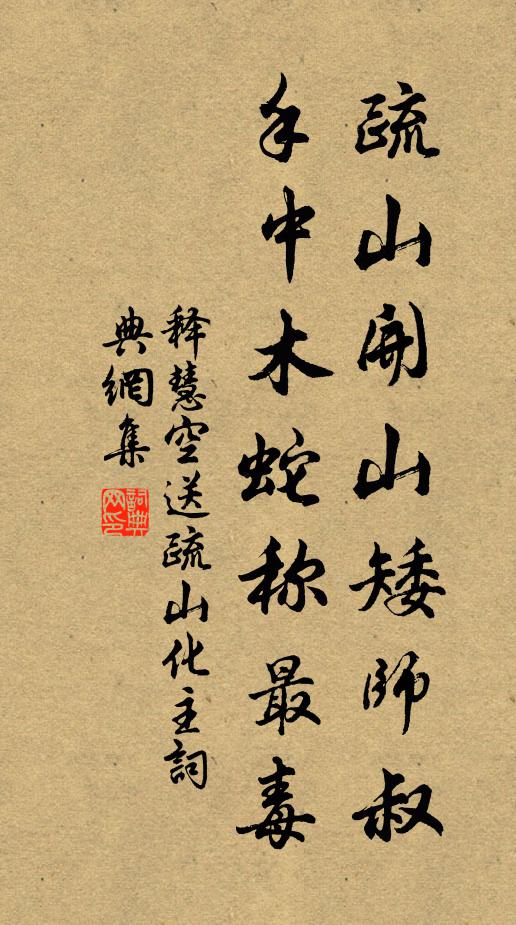 疏山開山矮師叔
手中木蛇称最毒
释慧空送疏山化主詞
典網集
詞典网印